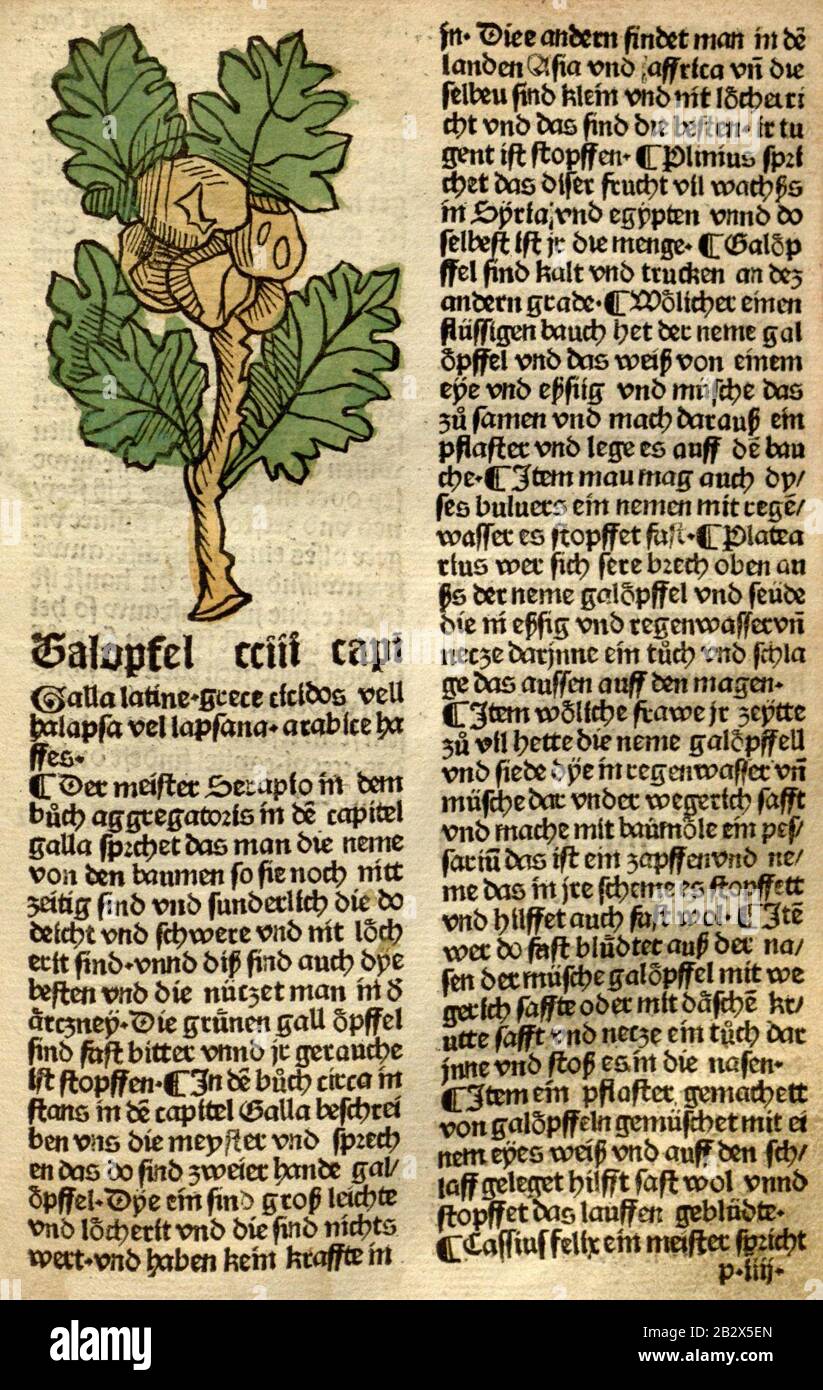 Galopfel cciii capi
Galla latine·grece cicidos vell
halapsa vel lapsana·arabice ha
ffes·
¶ Der meister Serapio in dem
bůch aggregatoris in dē capitel
galla sprichet das man die neme
von den baumen so sie noch nitt
zeitig sind vnd sunderlich die do
deicht vnd schwere vnd nit lo̊ch
erit sind·vnnd diß sind auch dÿe
besten vnd die nüczet man in d̄
årczneÿ·Die grünen gall o̊pffel
sind fast bitter vnnd jr gerauche
ist stopffen·¶ In dē bůch circa in
stans in dē capitel Galla beschrei
ben vns die meyster vnd sprech
en das do sind zweier hande gal/
o̊pffel·Dÿe ein sind groß leichte
vnd lo̊cherit vnd die sind nichts
wert·vnd haben kein kraffte in
jn· Diee andern findet man in dē
landen Asia vnd affrica vn̄ die
selbeu sind klein vnd nit lo̊chert
cht vnd das sind die besten· ir tu
gent ist stopffen· ¶ Plinius spri
chet das diser frucht vil wachßs
in Sÿria vnd egÿpten vnnd do
selbest ist jr die menge· ¶ Galo̊p
ffel sind kalt vnd trucken an dez
andern grade·¶ Wo̊licher einen
flüssigen bauch het der neme gal
o̊pffel vnd das weiß von einem
eÿe vnd eßsiig vnd müsche das
zů samen vnd mach darauß ein
pflaster vnd lege es auff dē bau
che·¶ Item mau mag auch dy/
ses buluers ein nemen mit regē/
wasser es stopffet fast·¶ Platea
rius wer sich sere brech oben an
ßs der neme galo̊pffel vnd seüde
die in eßsig vnd regenwasser vn̄
necze darjnne ein tůch vnd schla
ge das aussen auff den magen·
¶ Item wo̊liche frawe jr zeÿtte
zů vil hette die neme galo̊pffell
vnd siede dÿe in regenwasser vn̄
müsche dar vnder wegerich safft
vnd mache mit baumo̊le ein pes/
sariū das ist ein zapffen vnd ne/
me das in jre scheme es stopffett
vnd hilffet auch fast wol·¶ Itē
wer do fast blůdtet auß der na/
sen der müsche galo̊pffel mit we
gerich saffte oder mit då̊schē kr/
utte safft vnd necze ein tůch dar
jnne vnd stoß es in die nasen·
¶ Item ein pflaster gemachett
von galo̊pffeln gemüschet mit ei
nem eÿes weiß vnd auff den sch/
laff geleget hilfft fast wol vnnd
stopffet das lauffen geblüdte·
¶ Cassius felix ein meister spricht
p·iiij·
alamy
Image ID: 2B2X5EN
www.alamy.com